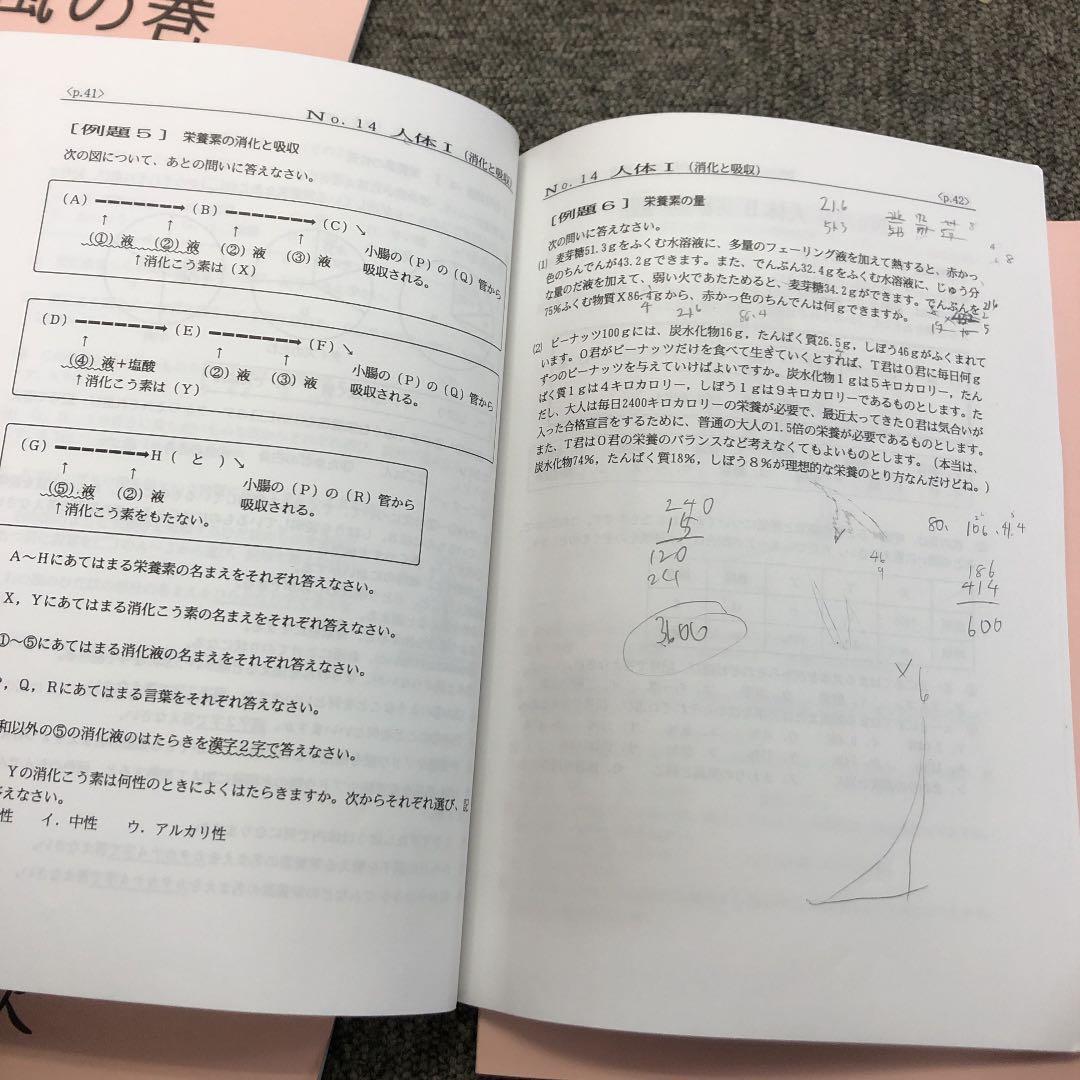 風の巻
<p.41>
No. 14 人体Ⅰ (消化と吸収)
[例題5] 栄養素の消化と吸収
次の図について、あとの問いに答えなさい。
(A) ------→ (B) ------→ (C) ↘
↑ ↑ ↑ ↑ 小腸の (P) の (Q) 管から
(①) 液 (②) 液 (②) 液 (③) 液 吸収される。
↑消化こう素は (X)
(D) ------→ (E) ------→ (F) ↘
↑ ↑ ↑ 小腸の (P) の (Q) 管から
(④) 液+塩酸 (②) 液 (③) 液 吸収される。
↑消化こう素は (Y)
(G) ------→H ( と ) ↘
↑ ↑ 小腸の (P) の (R) 管から
(⑤) 液 (②) 液 吸収される。
↑消化こう素をもたない。
A~Hにあてはまる栄養素の名まえをそれぞれ答えなさい。
X, Yにあてはまる消化こう素の名まえをそれぞれ答えなさい。
①~⑤にあてはまる消化液の名まえをそれぞれ答えなさい。
P, Q, Rにあてはまる言葉をそれぞれ答えなさい。
和以外の⑤の消化液のはたらきを漢字2字で答えなさい。
Yの消化こう素は何性のときによくはたらきますか。次からそれぞれ選び、記
答えなさい。
性 イ. 中性 ウ. アルカリ性
No. 14 人体Ⅰ (消化と吸収)
<p.42>
[例題6] 栄養素の量
21.6
513
次の問いに答えなさい。
(1) 麦芽糖51.3gをふくむ水溶液に、多量のフェーリング液を加えて熱すると、赤かっ
色のちんでんが43.2gできます。また、でんぷん32.4gをふくむ水溶液に、じゅう分
な量のだ液を加えて、弱い火であたためると、麦芽糖34.2gができます。でんぷんを
75%ふくむ物質X86.4gから、赤かっ色のちんでんは何gできますか。
21.6 86.4
(2) ピーナッツ100gには、炭水化物16g, たんぱく質26.5g, しぼう46gがふくまれて
います。O君がピーナッツだけを食べて生きていくとすれば、T君はO君に毎日何g
ずつのピーナッツを与えていけばよいですか。炭水化物1gは5キロカロリー, たん
ぱく質1gは4キロカロリー, しぼう1gは9キロカロリーであるものとします。た
だし、大人は毎日2400キロカロリーの栄養が必要で、最近太ってきたO君は気合いが
入った合格宣言をするために、普通の大人の1.5倍の栄養が必要であるものとします。
また、T君はO君の栄養のバランスなど考えなくてもよいものとします。(本当は、
炭水化物74%, たんぱく質18%, しぼう8%が理想的な栄養のとり方なんだけどね。)
240
15
120
24
3600
80、 106、414
46
9
186
414
600
×6